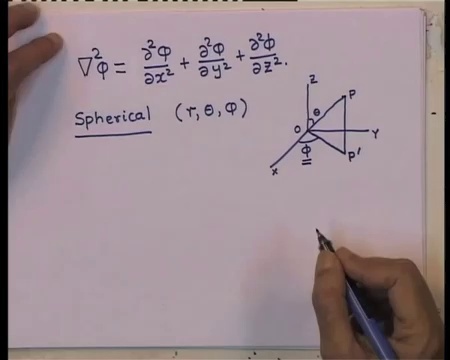 ∇²φ = ∂²φ/∂x² + ∂²φ/∂y² + ∂²φ/∂z².
Spherical (r, θ, φ)
Z
P
θ
O
Y
φ
X
P'